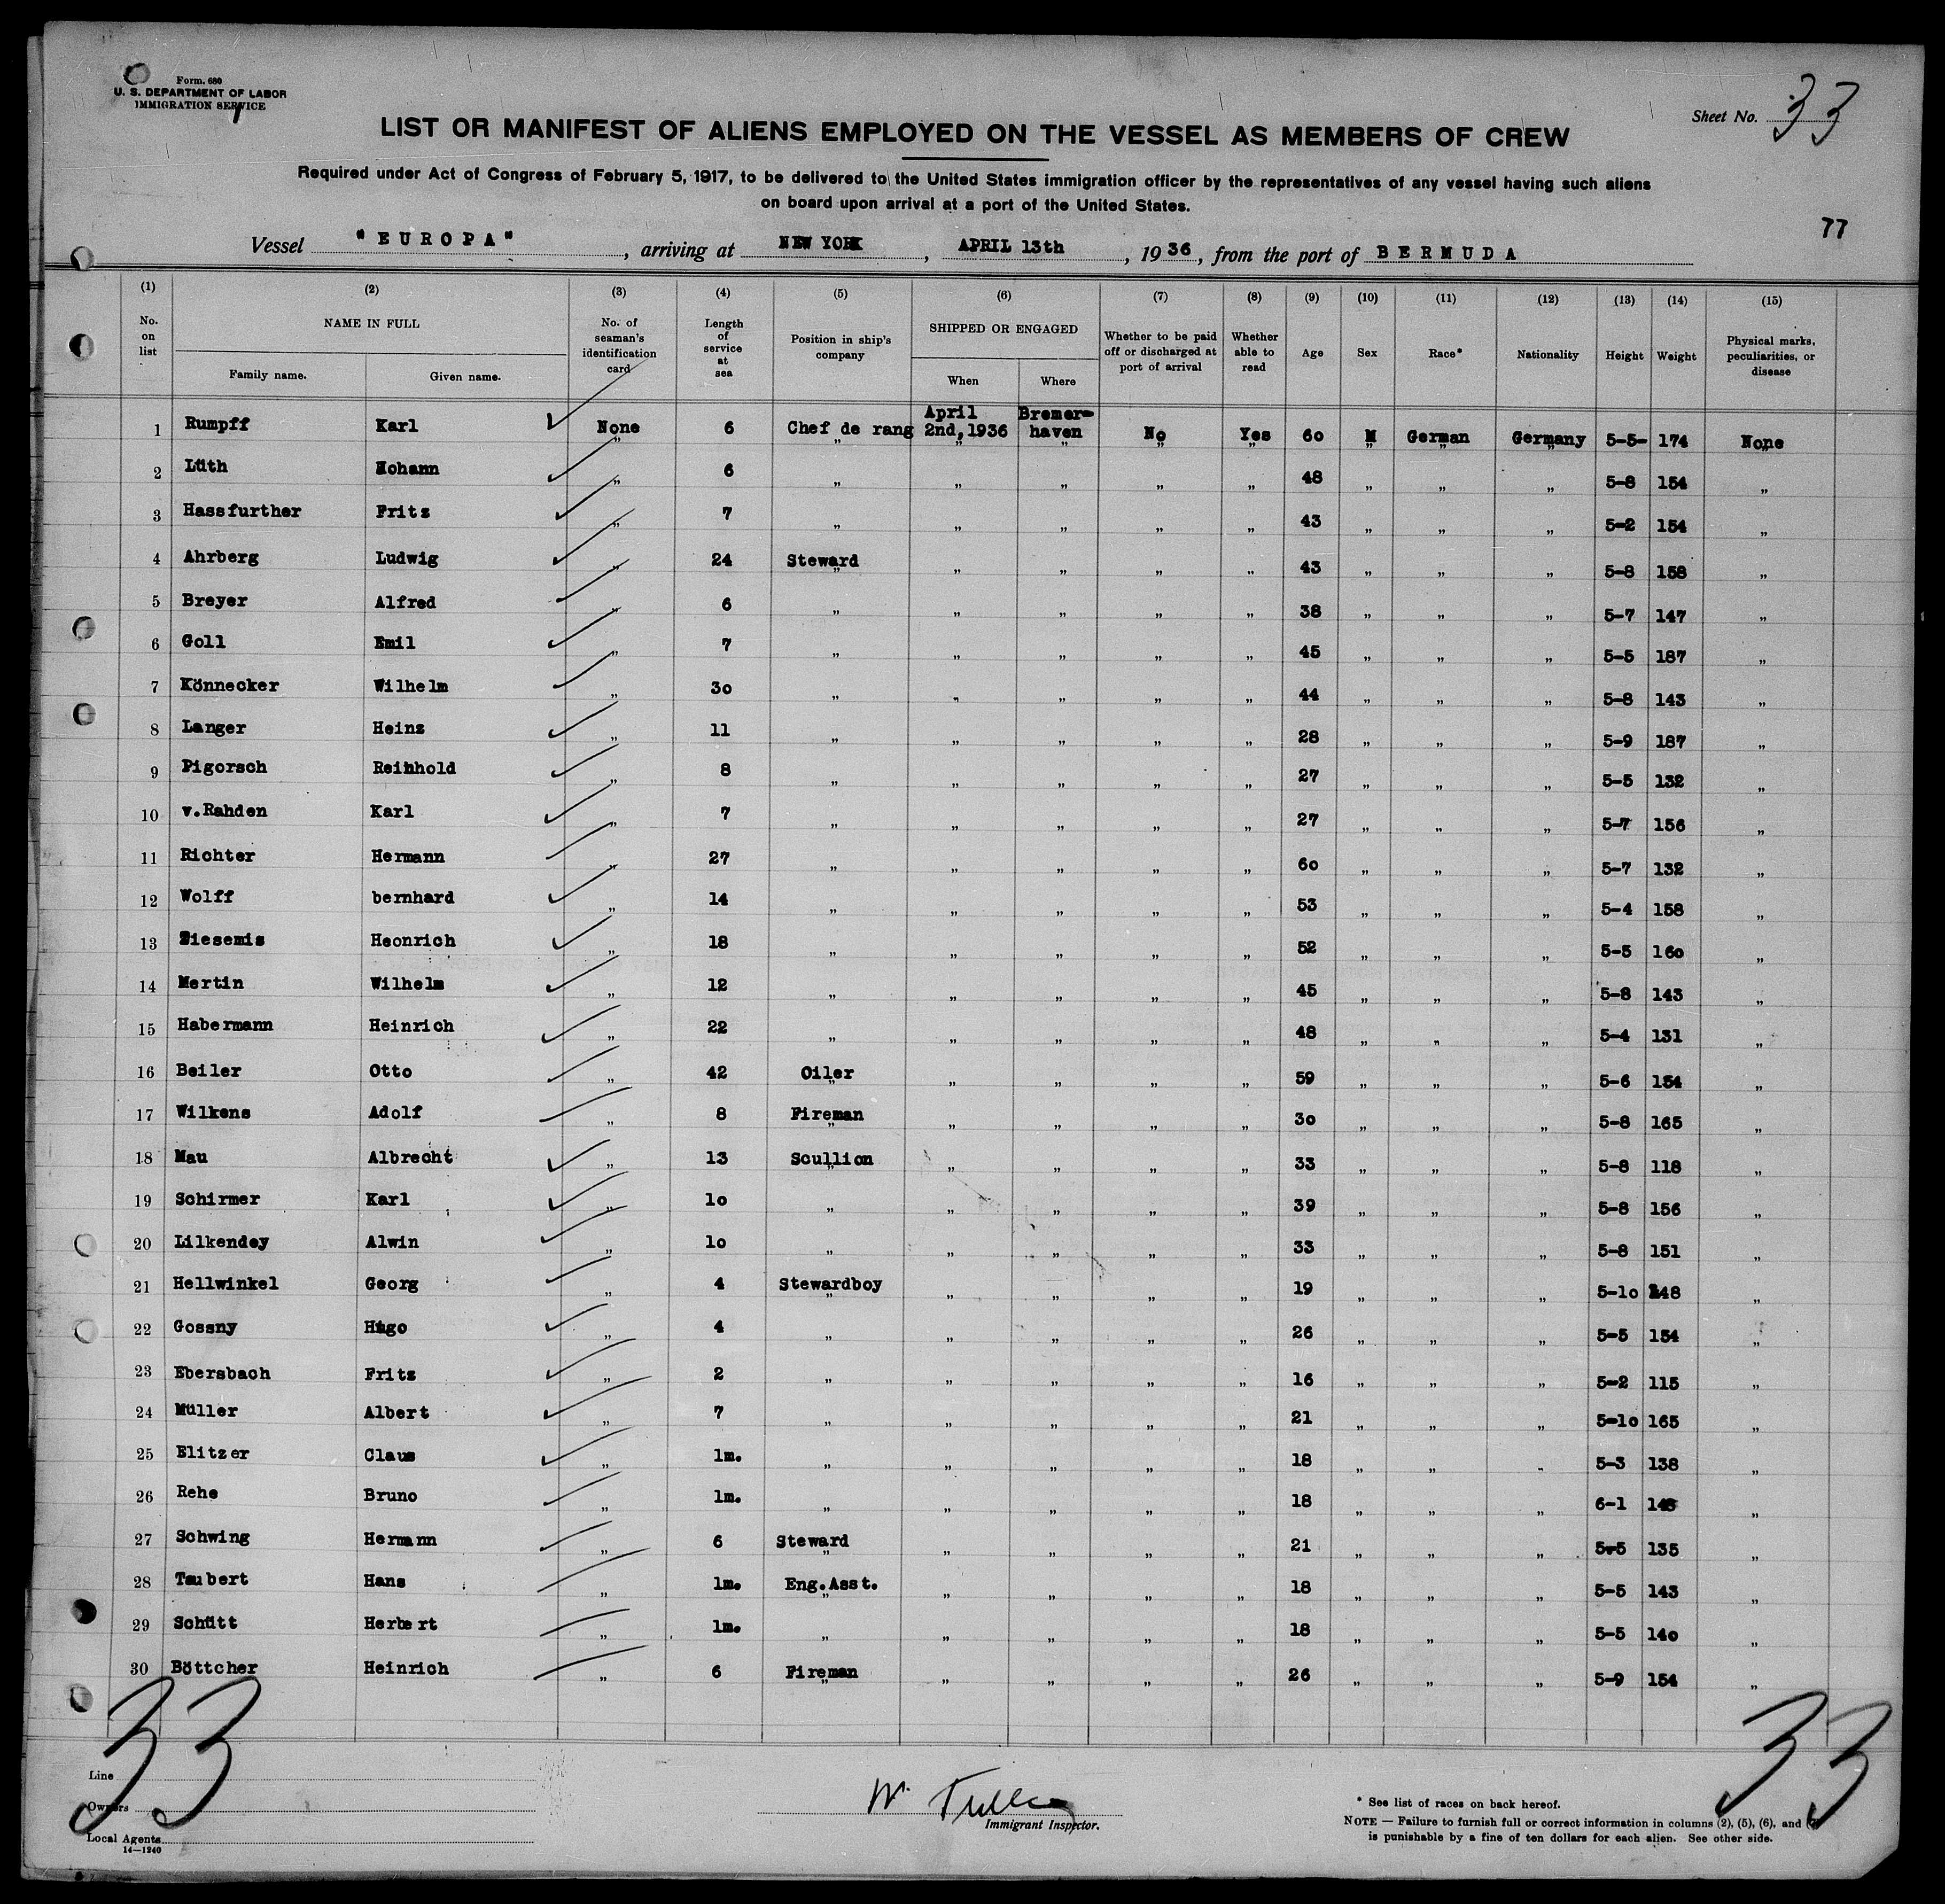 Form 680
U. S. DEPARTMENT OF LABOR
IMMIGRATION SERVICE
Sheet No. 33
LIST OR MANIFEST OF ALIENS EMPLOYED ON THE VESSEL AS MEMBERS OF CREW
Required under Act of Congress of February 5, 1917, to be delivered to the United States immigration officer by the representatives of any vessel having such aliens
on board upon arrival at a port of the United States.
77
Vessel "EUROPA", arriving at NEW YORK, APRIL 13th, 1936, from the port of BERMUDA
(1) (2) (3) (4) (5) (6) (7) (8) (9) (10) (11) (12) (13) (14) (15)
No. on list NAME IN FULL Family name. Given name. No. of seaman's identification card Length of service at sea Position in ship's company SHIPPED OR ENGAGED When Where Whether to be paid off or discharged at port of arrival Whether able to read Age Sex Race* Nationality Height Weight Physical marks, peculiarities, or disease
1 Rumpff Karl None 6 Chef de rang April 2nd, 1936 Bremerhaven No Yes 60 M German Germany 5-5- 174 None
2 Lüth Nohann " 6 " " " " " 48 " " " 5-8 154 "
3 Hassfurther Fritz " 7 " " " " " 43 " " " 5-2 154 "
4 Ahrberg Ludwig " 24 Steward " " " " 43 " " " 5-8 158 "
5 Breyer Alfred " 6 " " " " " 38 " " " 5-7 147 "
6 Goll Emil " 7 " " " " " 45 " " " 5-5 187 "
7 Könnecker Wilhelm " 30 " " " " " 44 " " " 5-8 143 "
8 Langer Heinz " 11 " " " " " 28 " " " 5-9 187 "
9 Pigorsch Reinhold " 8 " " " " " 27 " " " 5-5 132 "
10 v.Rahden Karl " 7 " " " " " 27 " " " 5-7 156 "
11 Richter Hermann " 27 " " " " " 60 " " " 5-7 132 "
12 Wolff bernhard " 14 " " " " " 53 " " " 5-4 158 "
13 Ziesemis Heonrich " 18 " " " " " 52 " " " 5-5 160 "
14 Mertin Wilhelm " 12 " " " " " 45 " " " 5-8 143 "
15 Habermann Heinrich " 22 " " " " " 48 " " " 5-4 131 "
16 Beiler Otto " 42 Oiler " " " " 59 " " " 5-6 154 "
17 Wilkens Adolf " 8 Fireman " " " " 30 " " " 5-8 165 "
18 Mau Albrecht " 13 Scullion " " " " 33 " " " 5-8 118 "
19 Schirmer Karl " 10 " " " " " 39 " " " 5-8 156 "
20 Lilkendey Alwin " 10 " " " " " 33 " " " 5-8 151 "
21 Hellwinkel Georg " 4 Stewardboy " " " " 19 " " " 5-10 148 "
22 Gossny Hugo " 4 " " " " " 26 " " " 5-5 154 "
23 Ebersbach Fritz " 2 " " " " " 16 " " " 5-2 115 "
24 Müller Albert " 7 " " " " " 21 " " " 5-10 165 "
25 Elitzer Claus " 1m. " " " " " 18 " " " 5-3 138 "
26 Rehe Bruno " 1m. " " " " " 18 " " " 6-1 "
27 Schwing Hermann " 6 Steward " " " " 21 " " " 5-5 135 "
28 Taubert Hans " 1m. Eng.Asst. " " " " 18 " " " 5-5 143 "
29 Schütt Herbert " 1m. " " " " " 18 " " " 5-5 140 "
30 Böttcher Heinrich " 6 Fireman " " " " 26 " " " 5-9 154 "
33 33
Line
Owners
Local Agents
14—1240
W.
Immigrant Inspector.
* See list of races on back hereof.
NOTE — Failure to furnish full or correct information in columns (2), (5), (6), and
is punishable by a fine of ten dollars for each alien. See other side.